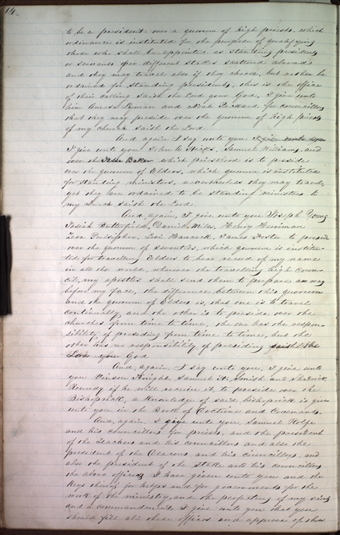 14.
to be a president over a quorum of high priests, which
ordinance is instituted for the purpose of qualifying
those who shall be appointed as standing presidents
or servants over different stakes scattered abroad,
and they may travel also if they choose, but rather be
ordained for standing presidents, this is the office
of their calling saith the Lord your God, I give unto
him Amasa Lyman and Noah Packard for councillors
that they may preside over the quorum of high priests
of my church saith the Lord.
And again I say unto you I give unto you
I give unto you John A. Hicks, Samuel Williams, and
Jesse Baker which priesthood is to preside
over the quorum of Elders, which quorum is instituted
for standing ministers, nevertheless they may travel
yet they are ordained to be standing ministers to
my church saith the Lord.
And, again, I give unto you Joseph Young
Josiah Butterfield, Daniel Miles, Henry Herriman
Zera Pulsipher, Levi Hancock, James Foster to preside
over the quorum of seventies, which quorum is institu-
ted for travelling Elders to bear record of my name
in all the world, wherever the travelling high Coun-
cil, my apostles shall send them to prepare a way
before my face, the difference between this quorum
and the quorum of Elders is, that one is to travel
continually, and the other is to preside over the
churches from time to time, the one has the responsi-
bility of presiding from time to time, but the
other has no responsibility of presiding saith the
Lord your God
And, again, I say unto you, I give unto
you Vinson Knight, Samuel H. Smith and Shadrach
Roundy, if he will receive it to preside over the
Bishopric, a knowledge of said bishopric is given
unto you in the Book of Doctrine and Covenants.
And, again, I say unto you, Samuel Rolfe
and his councillors for priests, and the president
of the Teachers and his councillors and also the
president of the Deacons and his councillors, and
also the president of the stake and his councillors
the above offices I have given unto you and the
keys thereof for helps and for governments for the
work of the ministry, and the perfecting of my saints
and a commandment I give unto you that you
should fill all these offices and approve of those